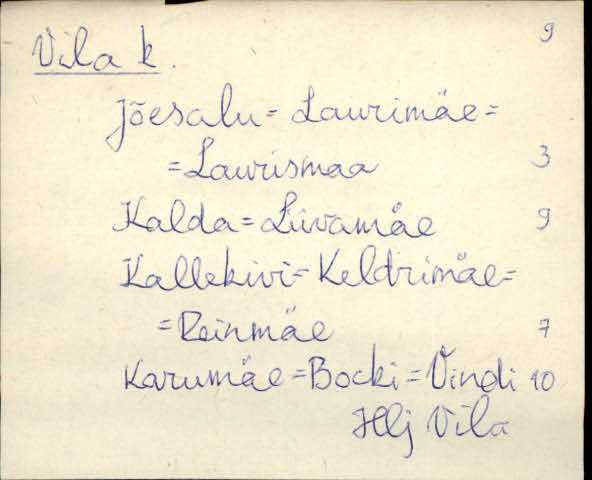 9
Vila k.
Jõesalu = Laurimäe =
= Laurismaa 3
Kalda = Liivamäe 9
Kallekivi = Keldrimäe =
= Reinmäe 7
Karumäe = Bocki = Vindi 10
Hlj Vila